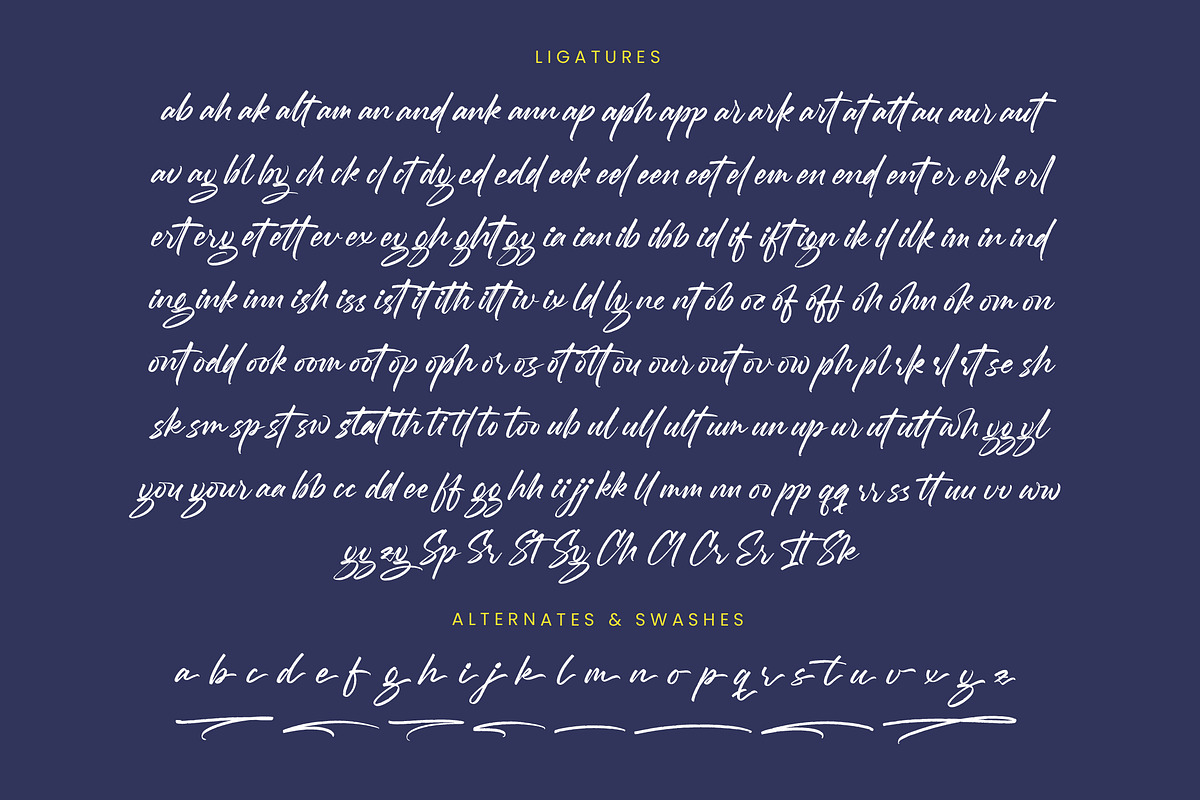 LIGATURES
ab ah ak alt am an and ank ann ap aph app ar ark art at att au aur aut
av ay bl by ch ck cl ct dy ed edd eek eel een eet el em en end ent er erk erl
ert ery et ett ev ex ey gh ght gy ia ian ib ibb id if ift ign ik il ilk im in ind
ing ink inn ish iss ist it ith itt iv ix ld ly ne nt ob oc of off oh ohn ok om on
ont odd ook oom oot op oph or os ot ott ou our out ov ow ph pl rk rl rt se sh
sk sm sp st sw stat th ti tl to too ub ul ull ult um un up ur ut utt wh yg yl
you your aa bb cc dd ee ff gg hh ii jj kk ll mm nn oo pp qq rr ss tt uu vv ww
yy zy Sp Sr St Sy Ch Cl Cr Er It Sk
ALTERNATES & SWASHES
a b c d e f g h i j k l m n o p q r s t u v x y z